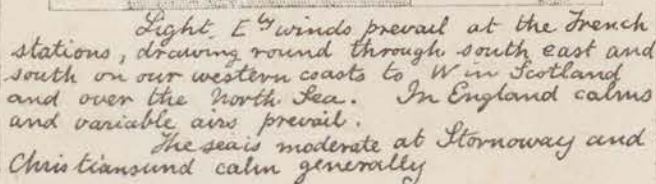 Light E^ly winds prevail at the French
stations, drawing round through south east and
south on our western coasts to W in Scotland
and over the North Sea. In England calms
and variable airs prevail.
The sea is moderate at Stornoway and
Christiansund calm generally